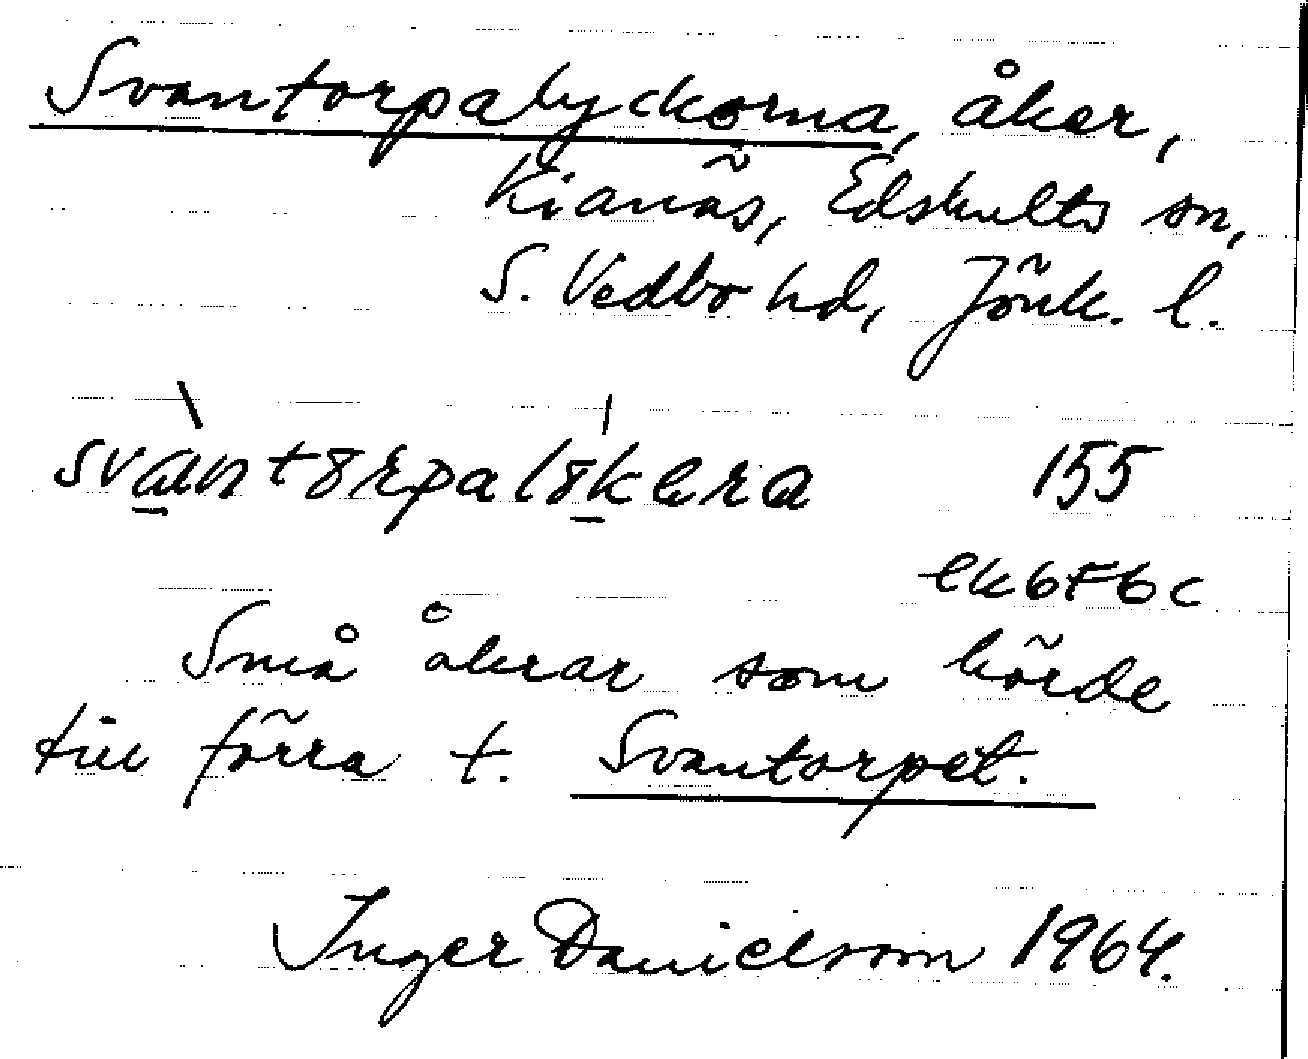 Svantorpalyckorna, åker,
Kianäs, Edshults sn,
S. Vedbo hd, Jönk. l.
155
ek6f6c
Små åkrar som hörde
till förra t. Svantorpet.
Inger Danielsson 1964.